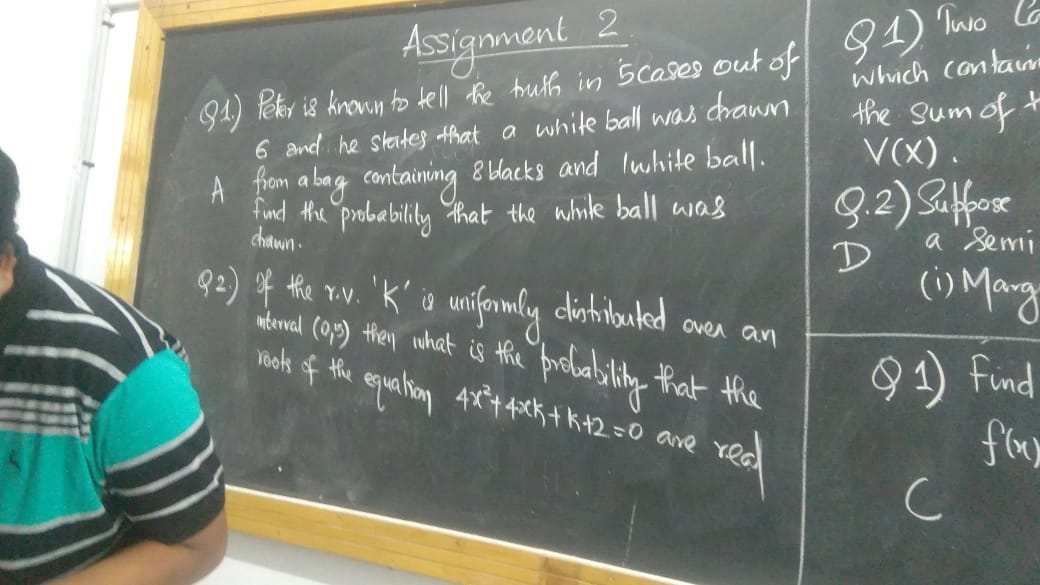 Assignment 2.
Q1.) Peter is known to tell the truth in 5 cases out of
6 and he states that a white ball was drawn
A from a bag containing 8 blacks and 1 white ball.
find the probability that the white ball was
drawn.
Q2.) If the r.v. 'K' is uniformly distributed over an
interval (0,5) then what is the probability that the
roots of the equation 4x²+4xk+k+2=0 are real
Q1) Two
which contain
the sum of
V(X).
Q.2) Suppose
D a Semi
(i) Marg
Q1) Find
f(x)
C